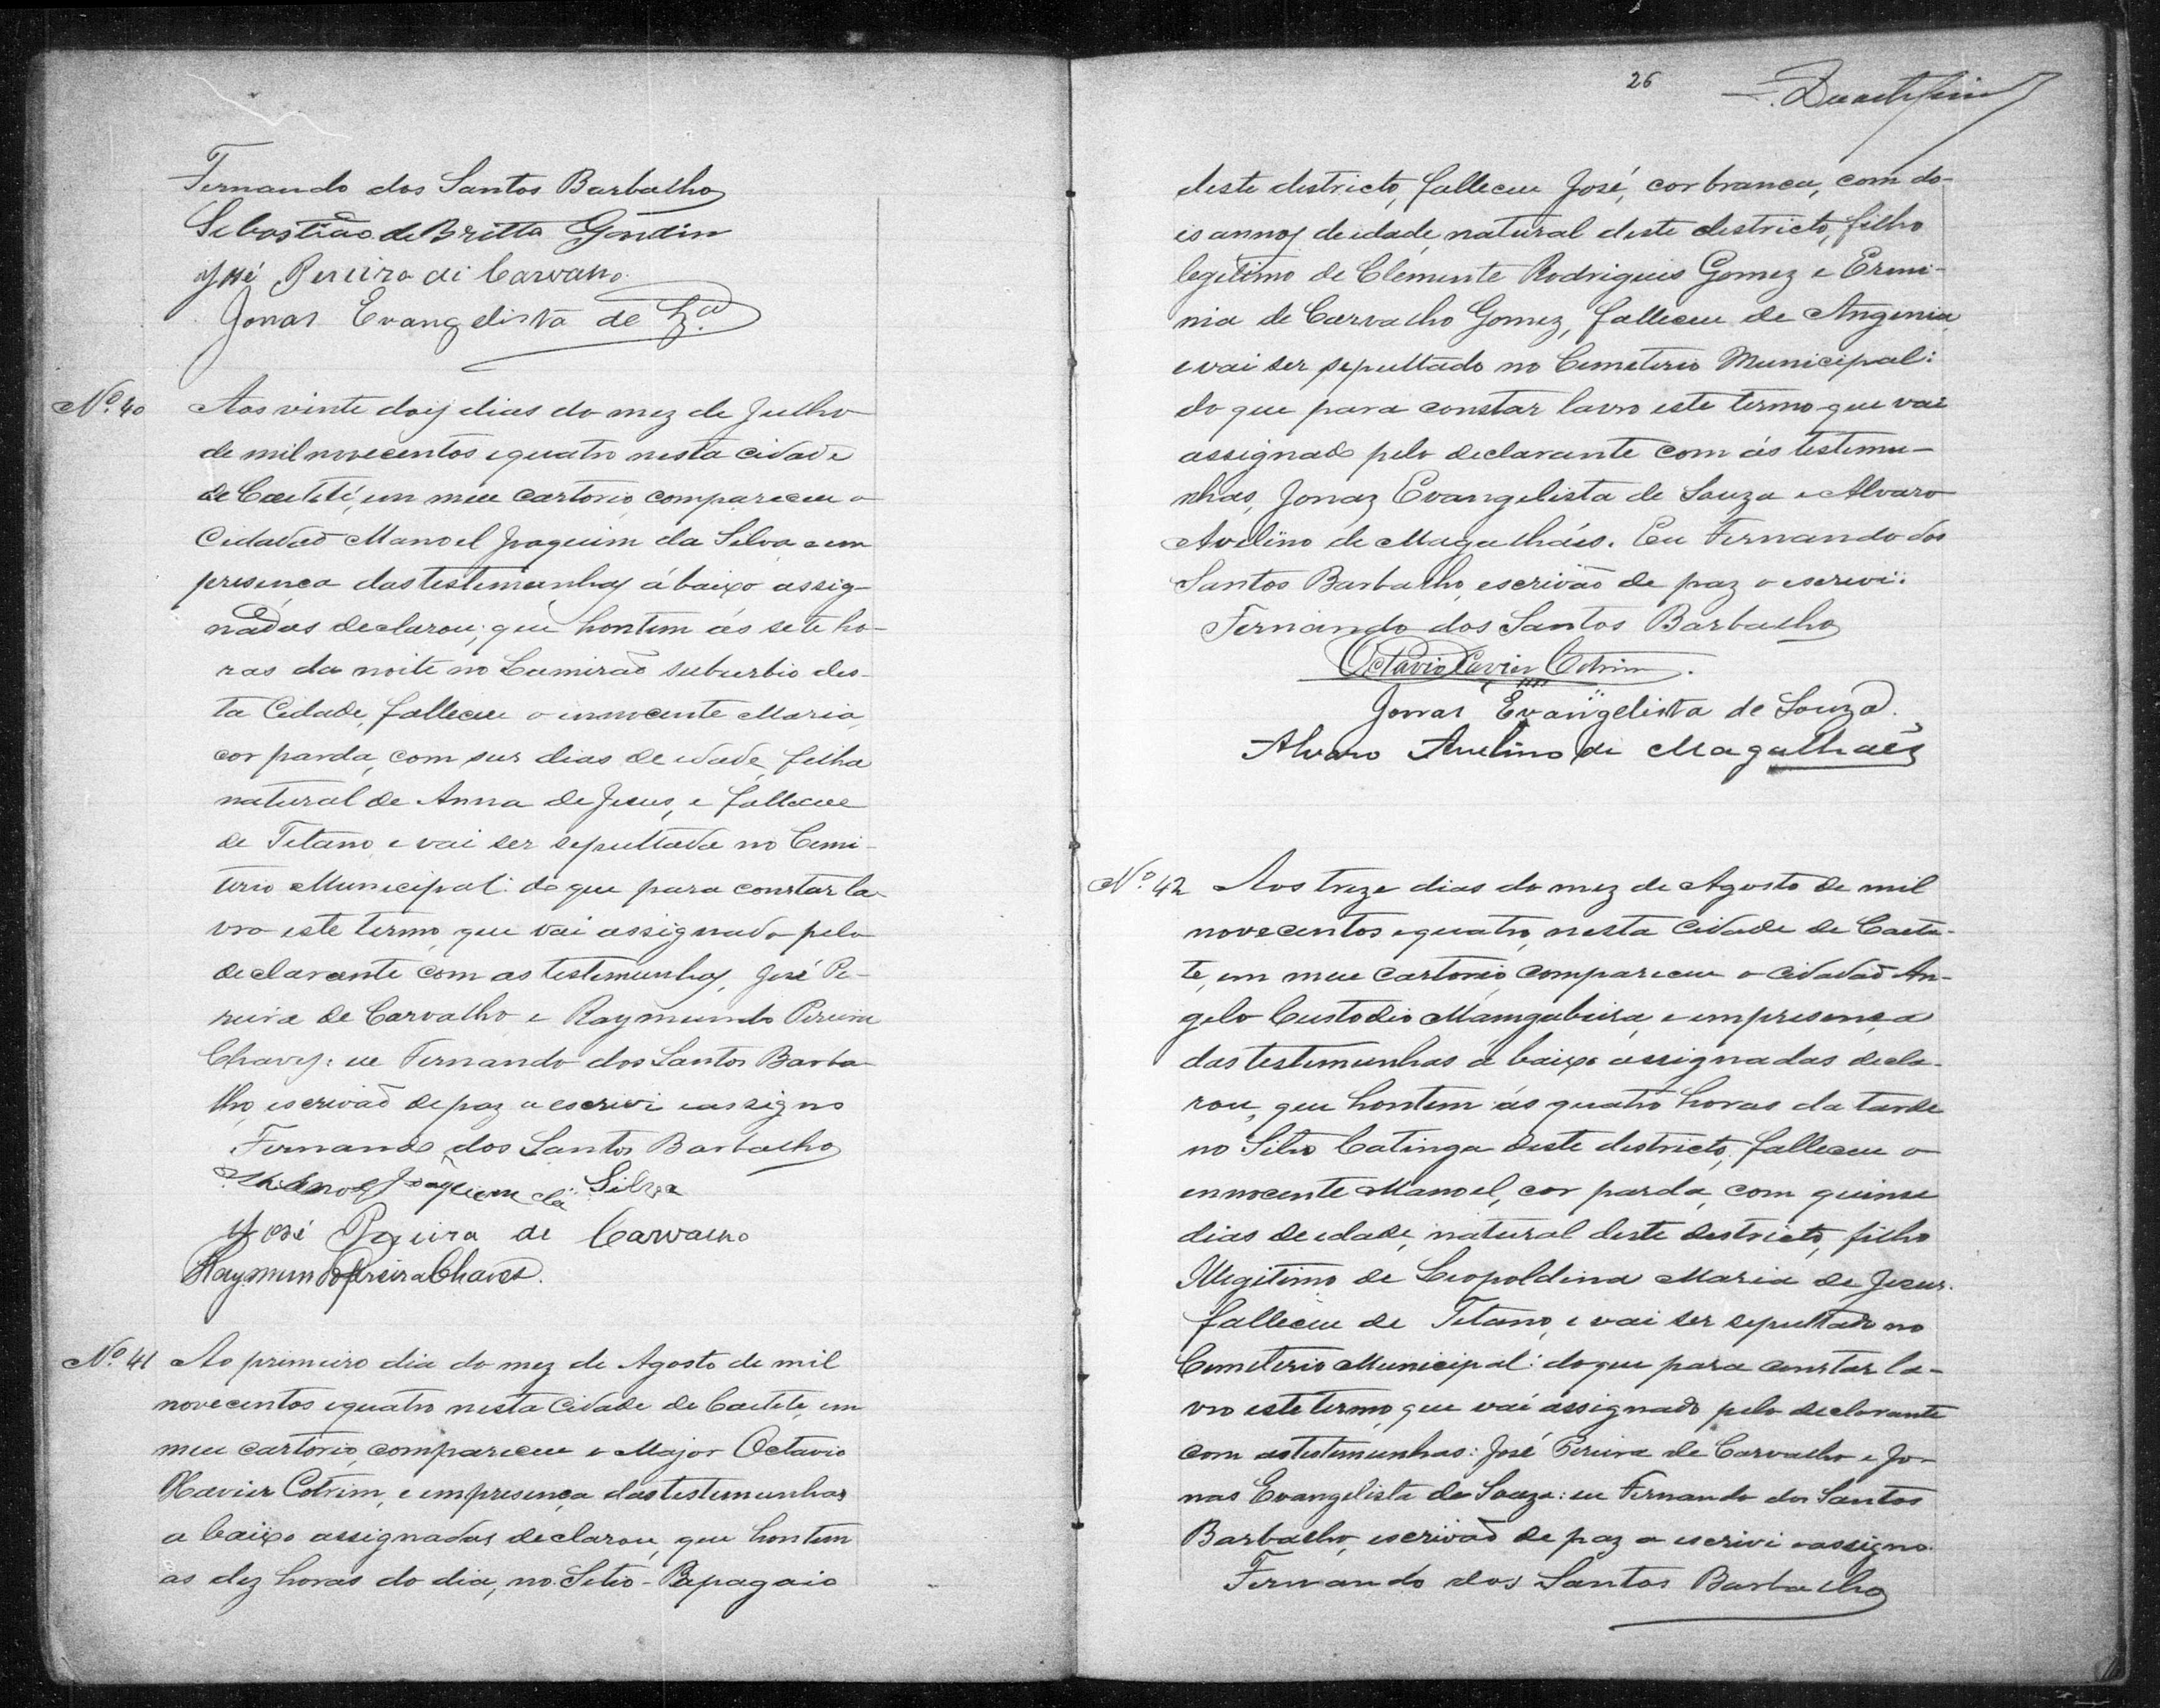 Fernando dos Santos Barbalho
Sebastião de Britto Gondin
José Pereira de Carvalho
Jonas Evangelista de Sza
Nº. 40 Aos vinte dois dias do mez de Julho
de mil novecentos e quatro nesta cidade
de Caeteté, em meu cartorio compareceu o
Cidadão Manoel Joaquim da Silva e em
presença das testemunhas á baixo assig-
nadas declarou, que hontem ás sete ho-
ras da noite no suburbio des-
ta Cidade, falleceu o innocente Maria,
cor parda, com seis dias de idade, filha
natural de Anna de Jesus, e falleceu
de Tetano e vai ser sepultada no Cemi-
terio Municipal: do que para constar la-
vro este termo que vai assignado pelo
declarante com as testemunhas, José Pe-
reira de Carvalho e Raymundo Pereira
Chaves: eu Fernando dos Santos Barba-
lho, escrivão de paz o escrevi e assigno
Fernando dos Santos Barbalho
Manoel Joaquim da Silva
José Pereira de Carvalho
Raymundo Pereira Chaves.
Nº. 41 Ao primeiro dia do mez de Agosto de mil
novecentos e quatro nesta Cidade de Caeteté, em
meu cartorio, compareceu o Major Octavio
Xavier Cotrim, e em presença das testemunhas
a baixo assignadas declarou, que hontem
as dez horas do dia, no Sitio - Papagaio
26
deste districto, falleceu José, cor branca, com do-
is annos de idade, natural deste districto, filho
legitimo de Clemente Rodrigues Gomez e Ermi-
nia de Carvalho Gomez, falleceu de Angenia
e vai ser sepultado no Cemeterio Municipal:
do que para constar lavro este termo que vai
assignado pelo declarante com ás testemu-
nhas, Jonaz Evangelista de Souza e Alvaro
Avelino de Magalháes. Eu Fernando dos
Santos Barbalho, escrivão de paz o escrevi:
Fernando dos Santos Barbalho
Octavio Xavier Cotrim.
Jonas Evangelista de Souza.
Alvaro Avelino de Magalhaēs
Nº. 42 Aos treze dias do mez de Agosto de mil
novecentos e quatro, nesta Cidade de Caete-
té, em meu cartorio compareceu o cidadão An-
gelo Custodio Mamgabeira, e em presença
das testemunhas á baixo assignadas decla-
rou, que hontem ás quatro horas da tarde
no Sitio Catinga deste districto, falleceu o
innocente Manoel, cor parda, com quinse
dias de edade, natural deste destricto, filho
Illegitimo de Leopoldina Maria de Jesus.
falleceu de Tetano, e vai ser sepultado no
Cemeterio Municipal: do que para constar la-
vro este termo, que vai assignado pelo declarante
com as testemunhas: José Pereira de Carvalho e Jo-
nas Evangelista de Souza: eu Fernando dos Santos
Barbalho, escrivão de paz o escrivi e assigno.
Fernando dos Santos Barbalho